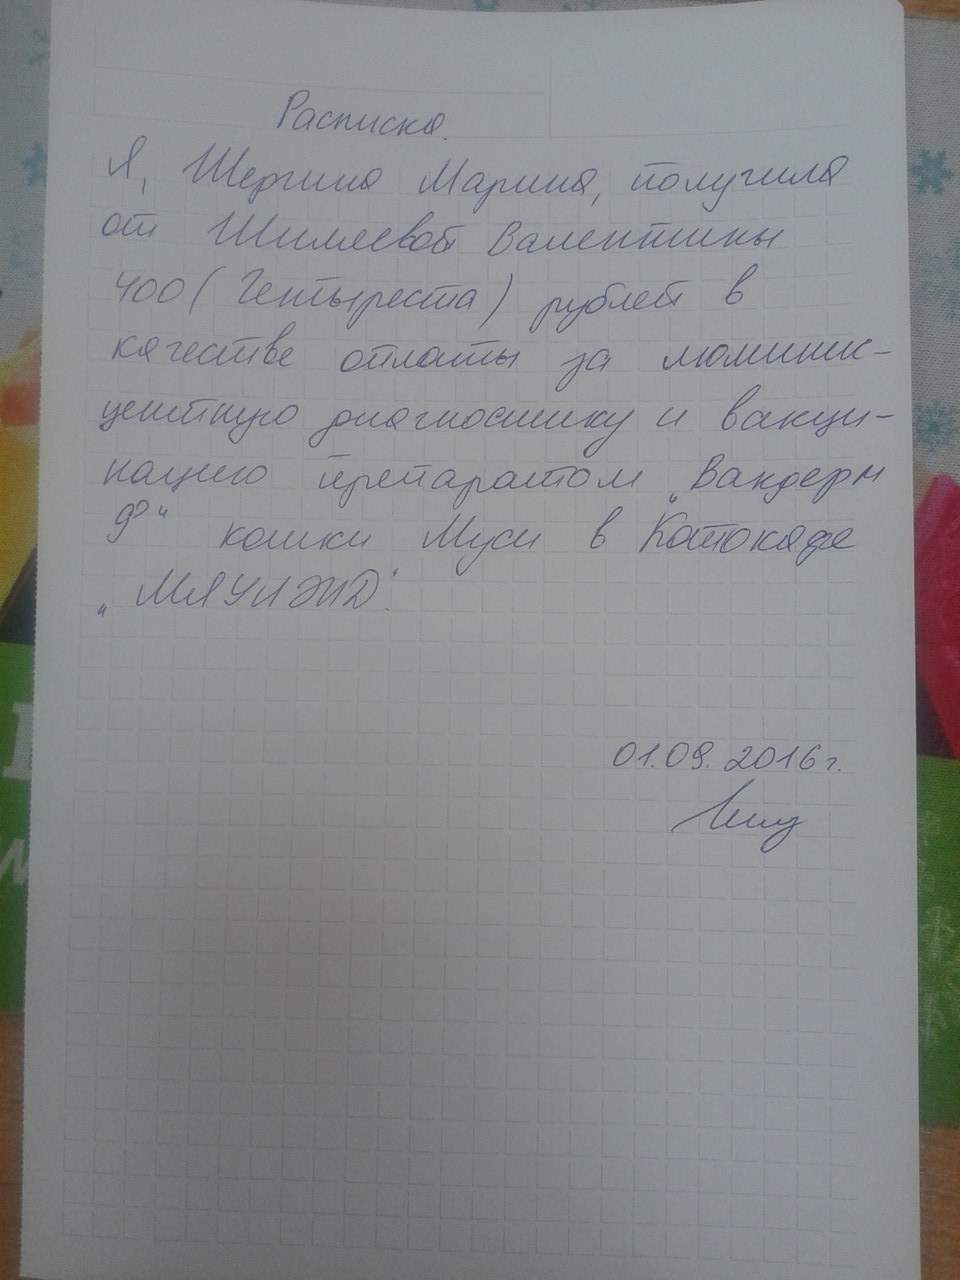 Расписка.
Я, Шергина Марина, получила
от Шиляевой Валентины
400 (Четыреста) рублей в
качестве оплаты за люминис-
центную диагностику и вакци-
нацию препаратом „Вакдерм
F" кошки Муси в Котокафе
„МЯУЛЭНД".
01.09.2016 г.